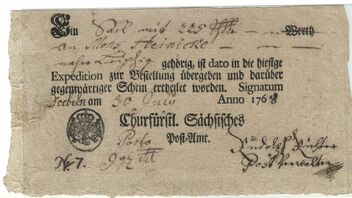 Ein Sack mit 225 Werth
an Mons. Heinicke
nach Leipzig gehörig, ist dato in die hiesige
Expedition zur Bestellung übergeben und darüber
gegenwärtiger Schein ertheilet worden. Signatum
Doebeln am 30 Anno 1768
Churfürstl. Sächsisches
Post-Amt.
Porto
No. 7. 9
Rudolph Richter
Post Verwalter